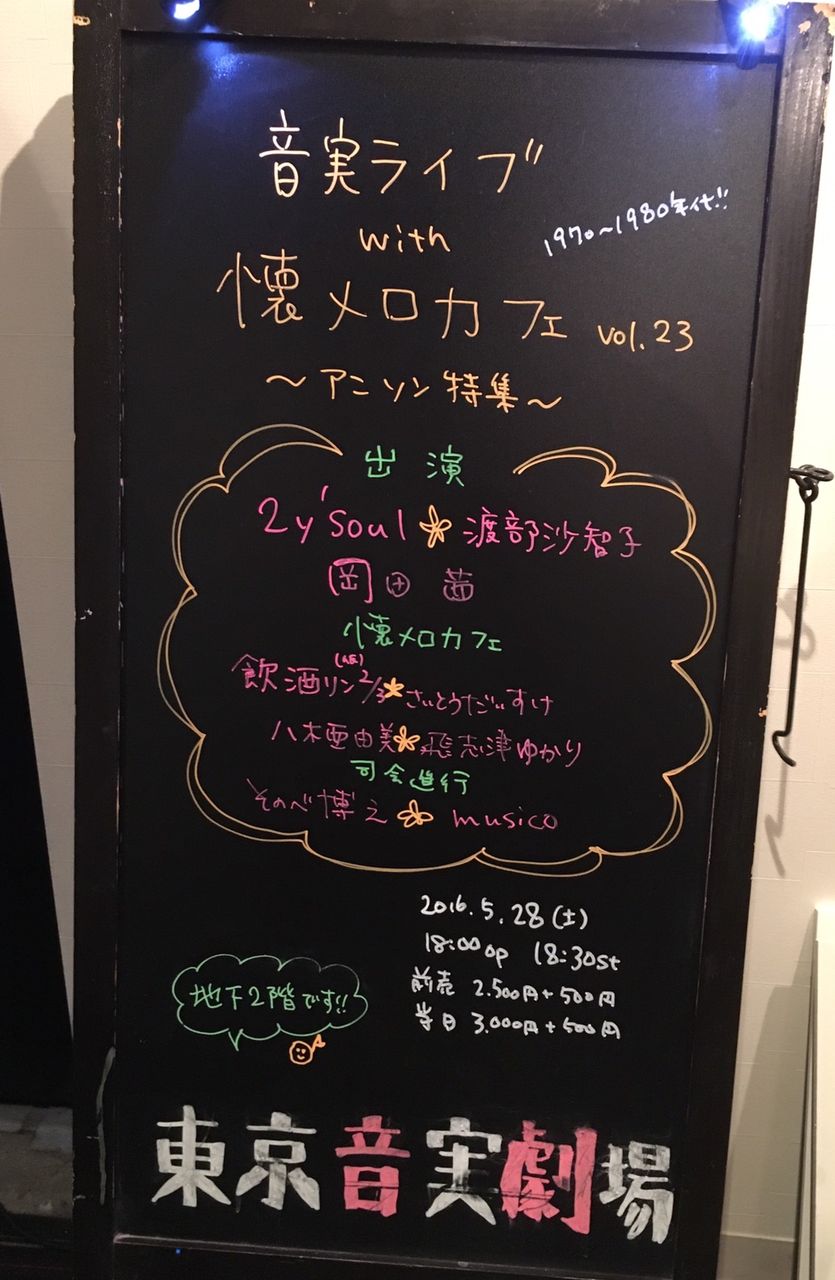 音実ライブ
with
1970〜1980年代!!
懐メロカフェ vol.23
〜アニソン特集〜
出演
2y'soul 渡部沙智子
岡田 茜
懐メロカフェ
飲酒リン(仮)2/3 さいとうだいすけ
八木亜由美 飛志津ゆかり
司会進行
そのべ博之 musico
2016.5.28(土)
18:00op 18:30st
前売 2.500円+500円
当日 3.000円+500円
地下2階です!!
東京音実劇場